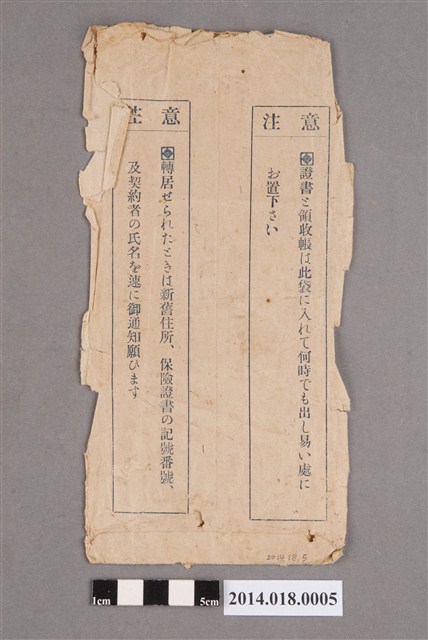 注意
證書と領收帳は此袋に入れて何時でも出し易い處に
お置下さい
注意
轉居せられたときは新舊住所、保險證書の記號番號、
及契約者の氏名を速に御通知願ひます
2014.18.5
1cm 5cm
2014.018.0005